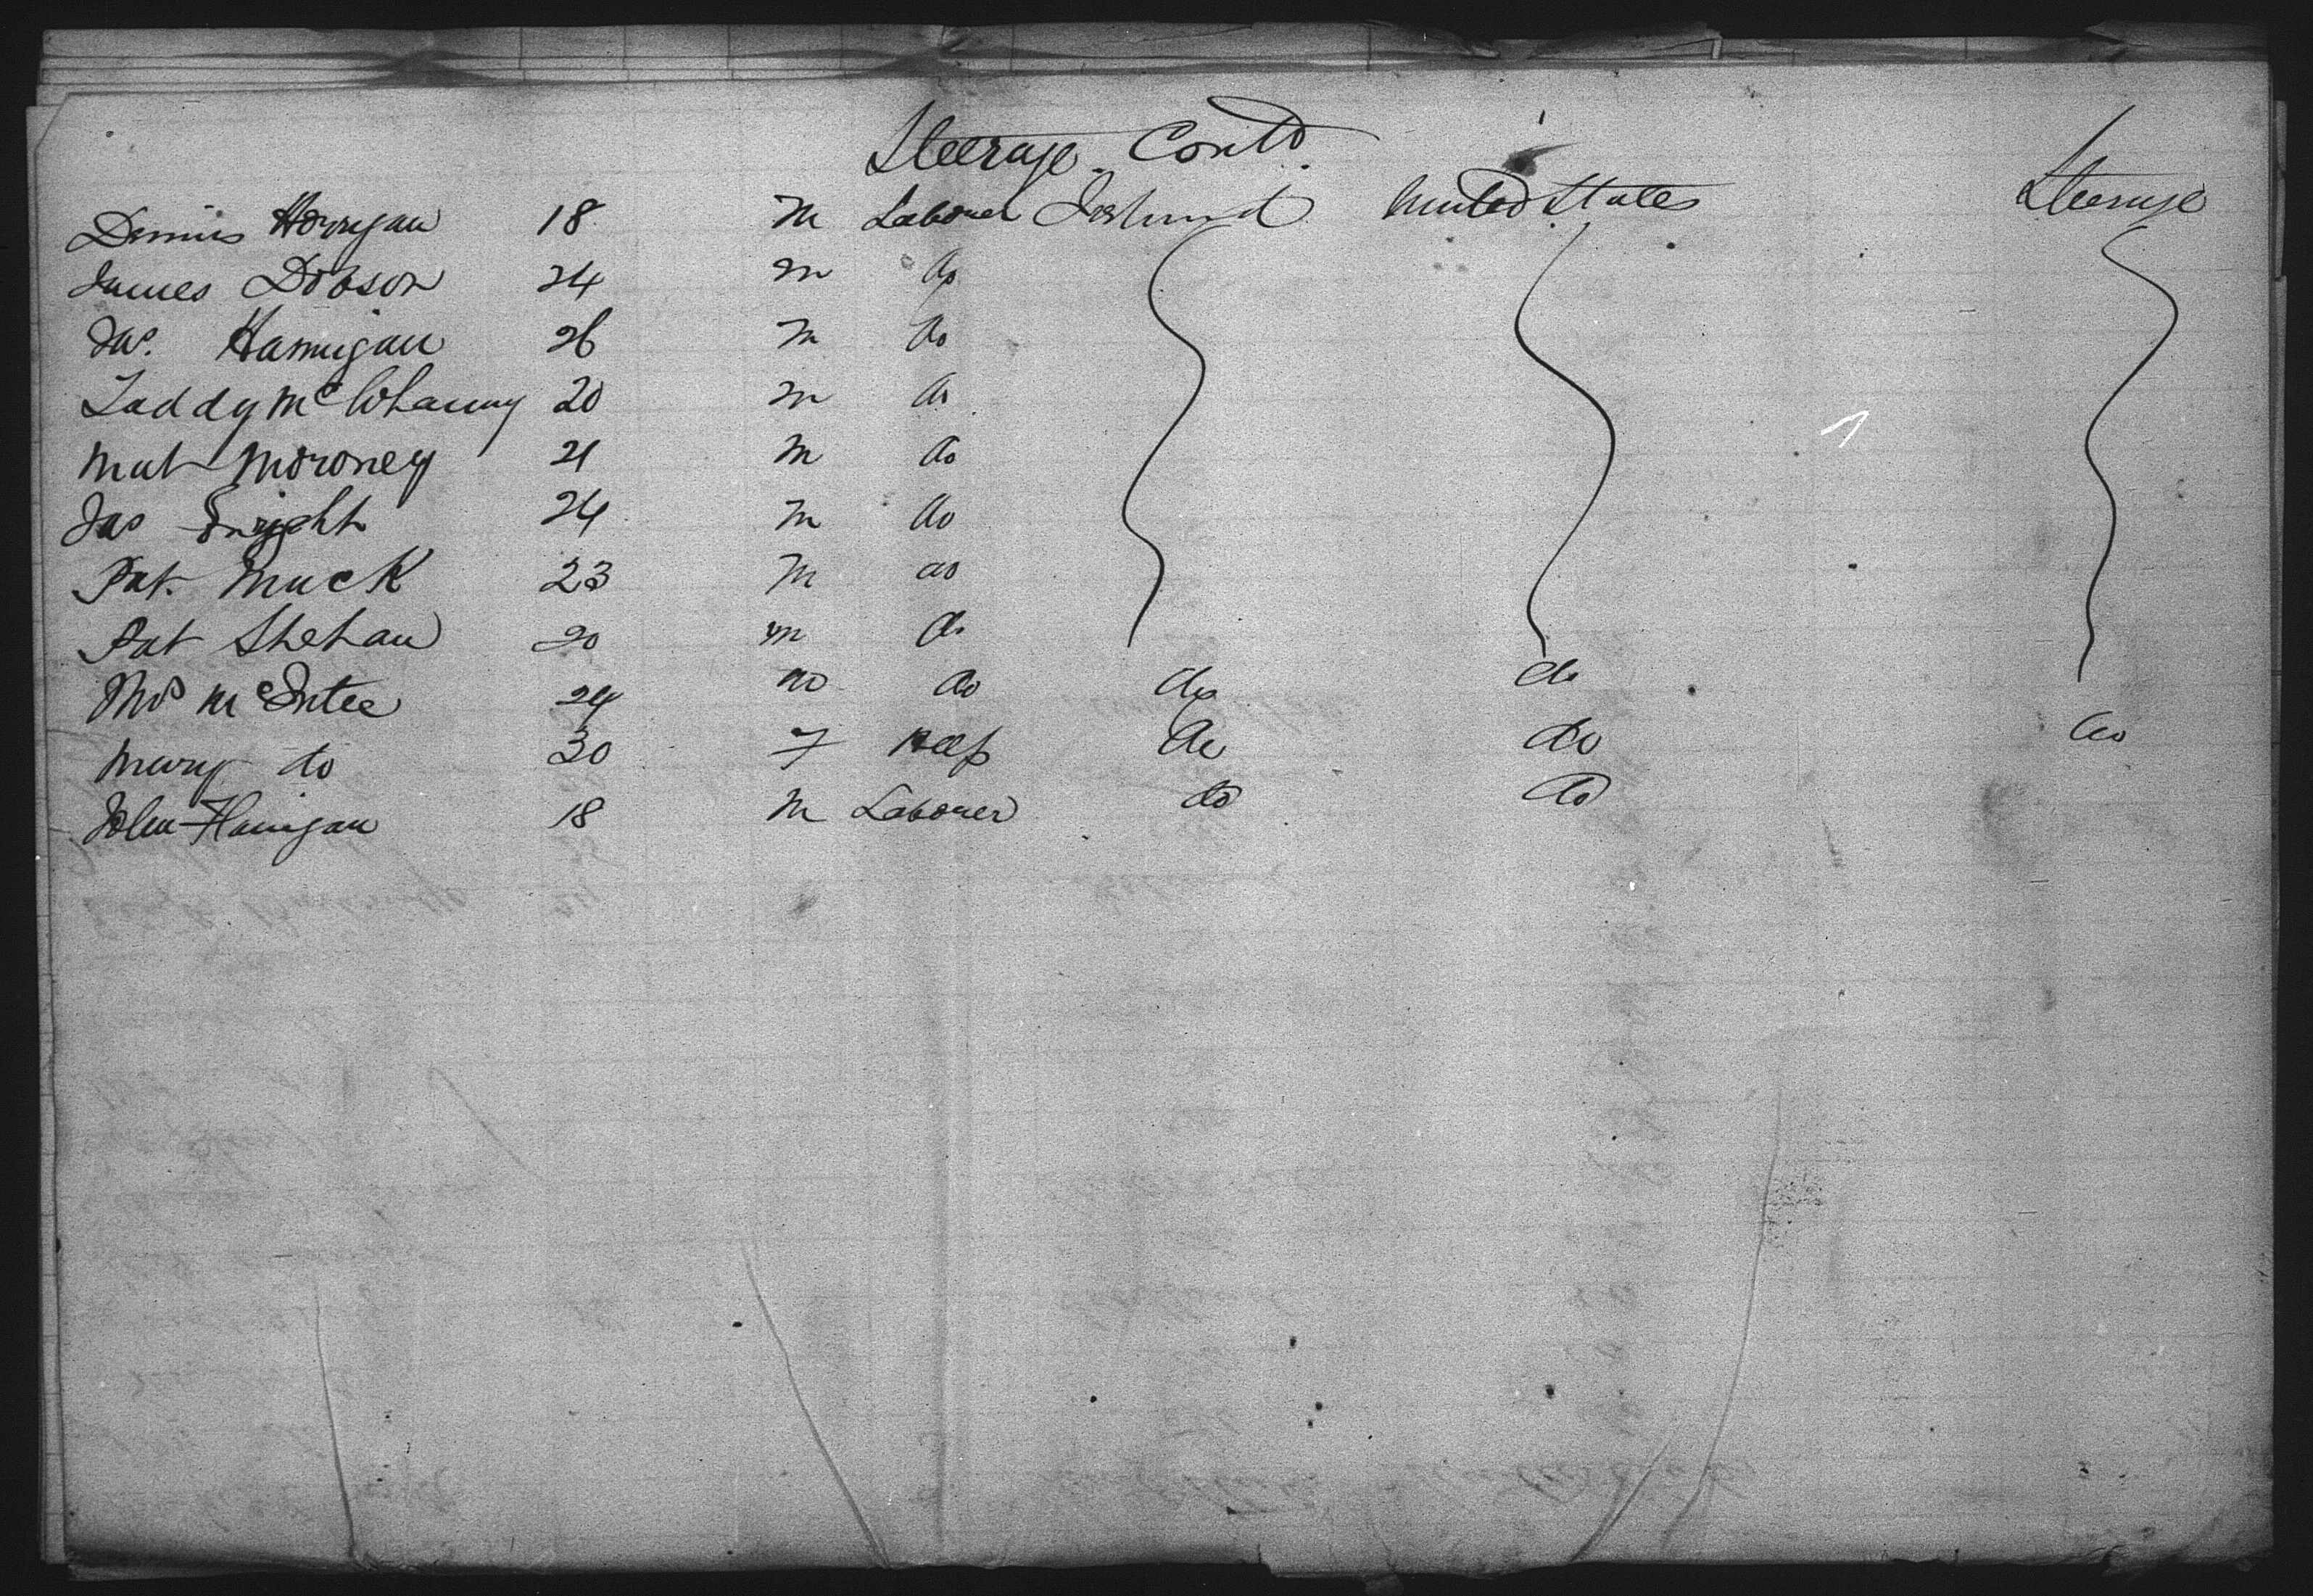 Steerage Contd.
Dennis Horrigan 18 M Laborer Ireland United States Steerage
James Dobson 24 M do
Jas. Hannigan 26 M do
Taddy Mc 20 M do
Mat Moroney 21 M do
Jas Enright 24 M do
Pat. Muck 23 M do
Pat Shehan 20 M do
Thos McEntee 24 do do do do
Mary do 30 F do do do
John Hanigan 18 M Laborer do do